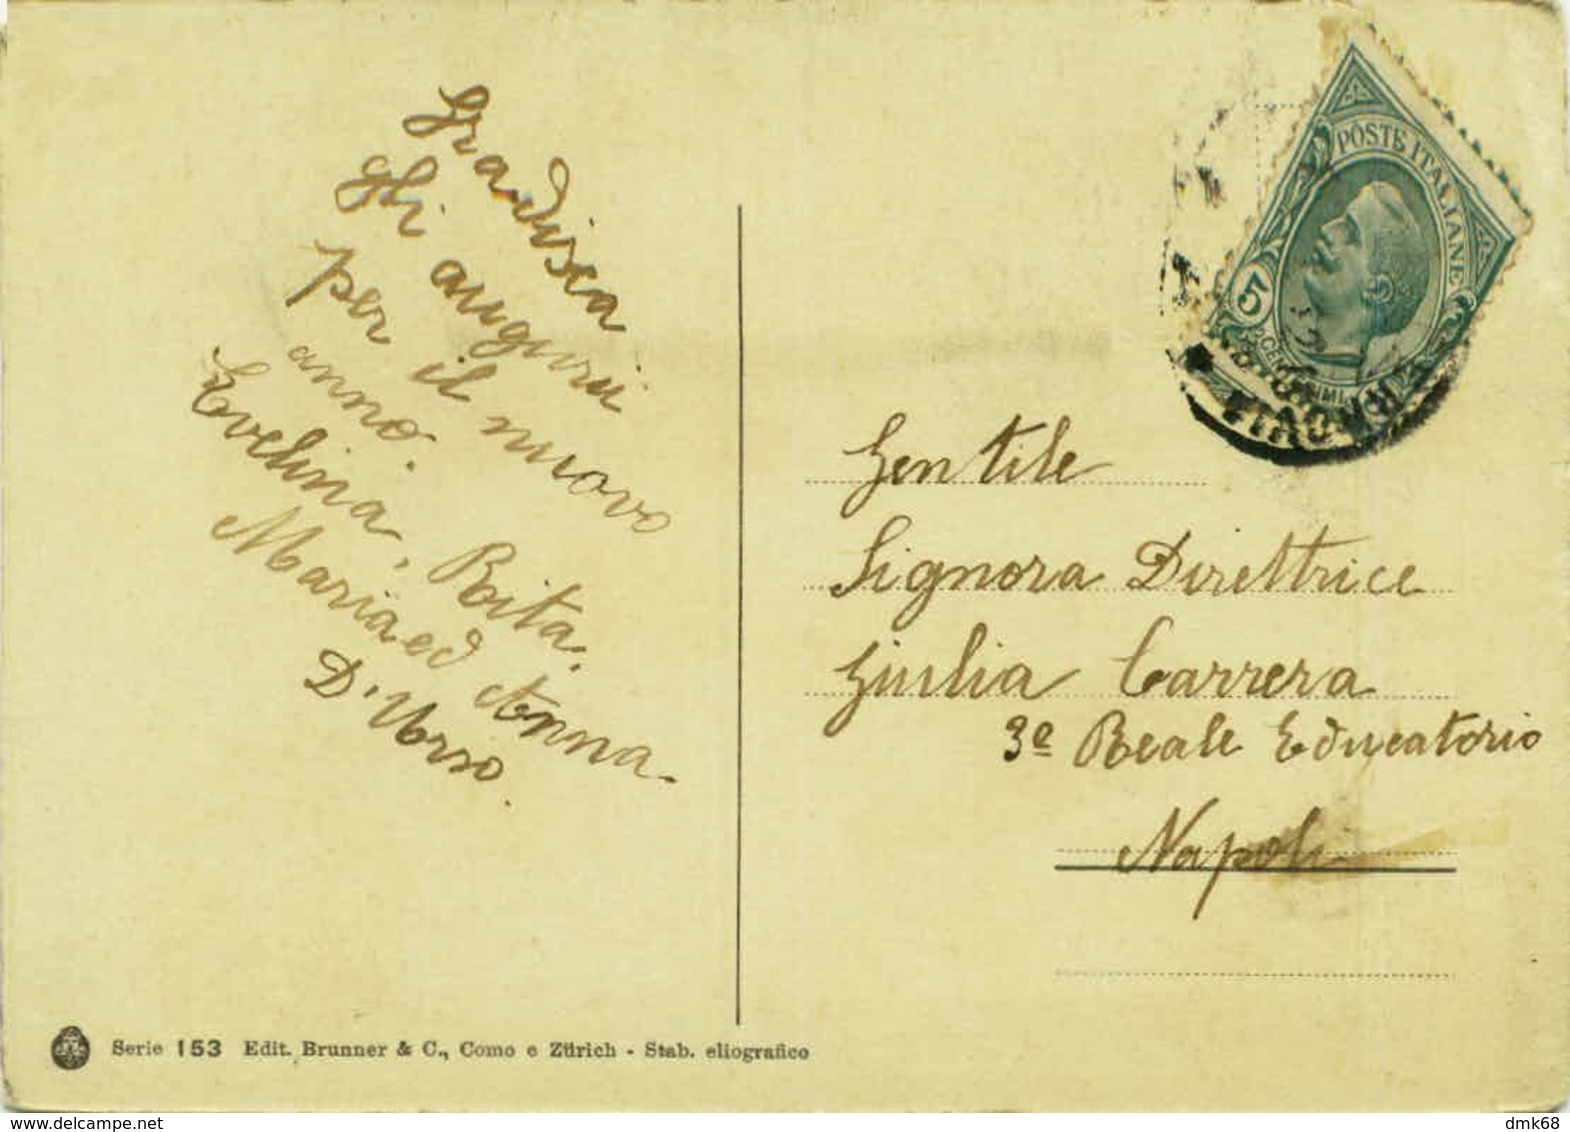 Gradisca
gli auguri
per il nuovo
anno.
Evelina, Rita,
Maria ed Anna
D'Urso.
POSTE ITALIANE
5
Gentile
Signora Direttrice
Giulia Carrera
3º Reale Educatorio
Napoli
Serie 153 Edit. Brunner & C., Como e Zürich - Stab. eliografico
www.delcampe.net
dmk68